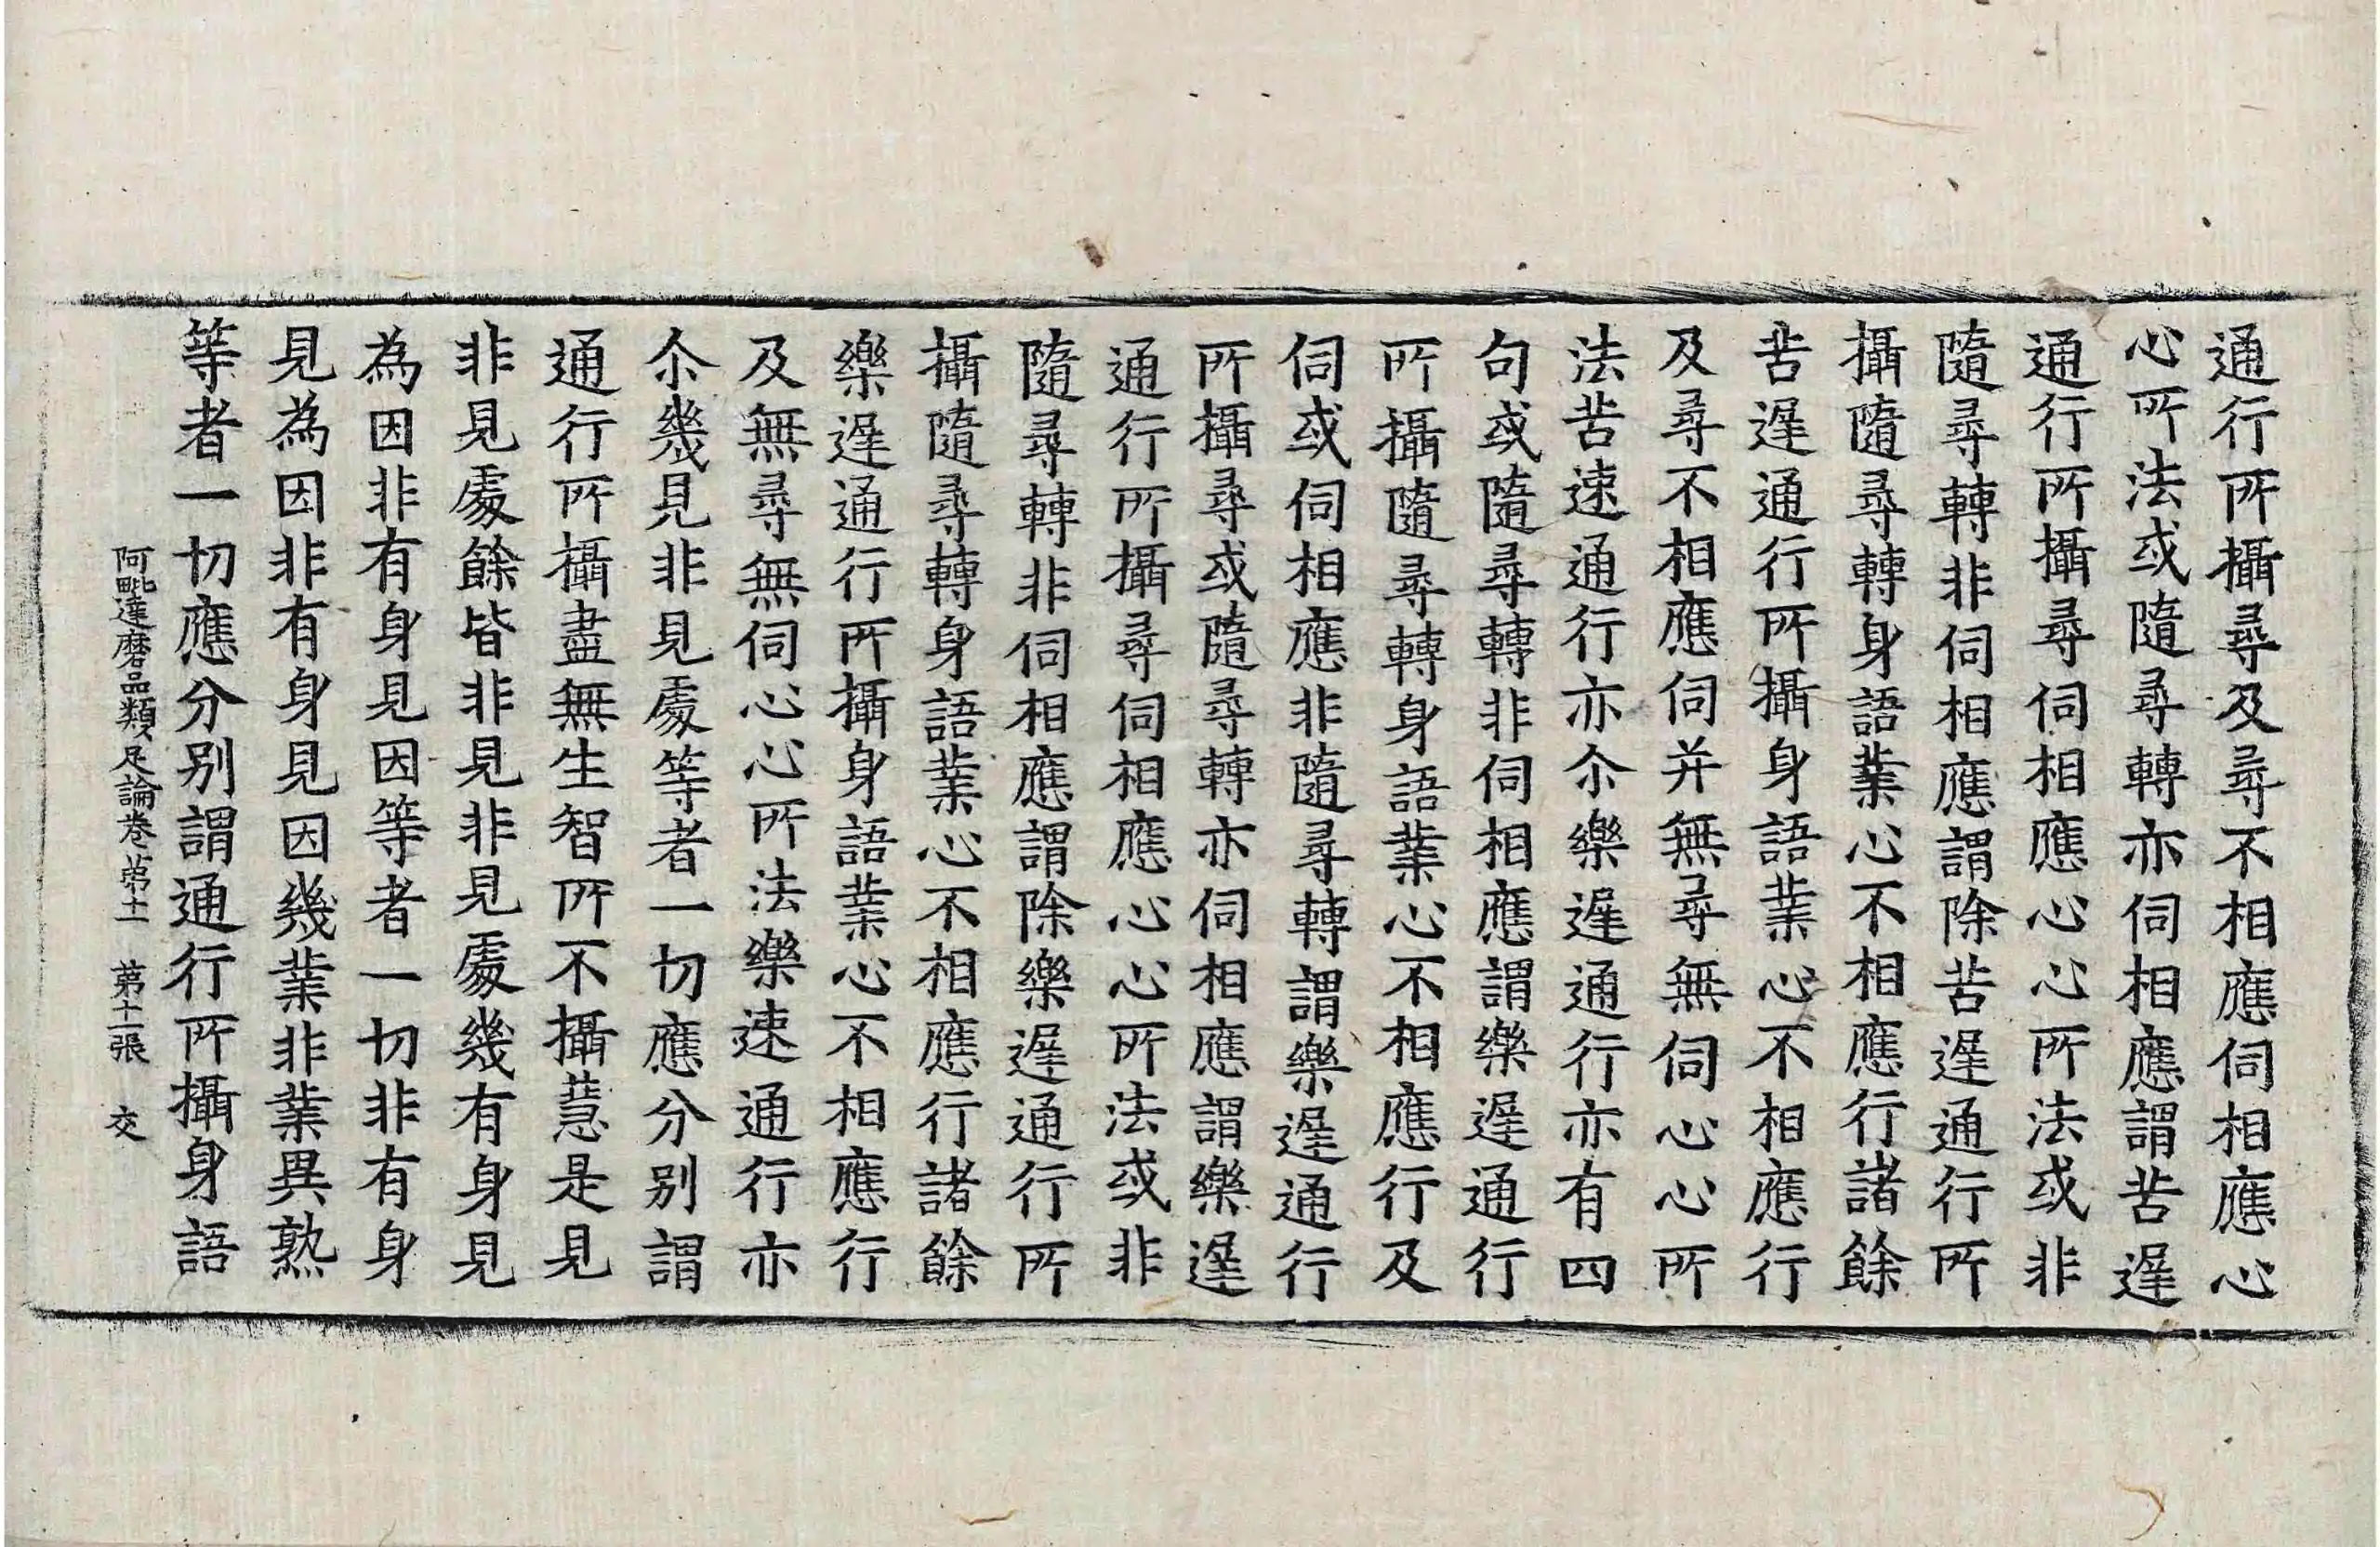 通行所攝尋及尋不相應伺相應心
心所法或隨尋轉亦伺相應謂苦遲
通行所攝尋伺相應心心所法或非
隨尋轉非伺相應謂除苦遲通行所
攝隨尋轉身語業心不相應行諸餘
苦遲通行所攝身語業心不相應行
及尋不相應伺并無尋無伺心心所
法苦速通行亦尒樂遲通行亦有四
句或隨尋轉非伺相應謂樂遲通行
所攝隨尋轉身語業心不相應行及
伺或伺相應非隨尋轉謂樂遲通行
所攝尋或隨尋轉亦伺相應謂樂遲
通行所攝尋伺相應心心所法或非
隨尋轉非伺相應謂除樂遲通行所
攝隨尋轉身語業心不相應行諸餘
樂遲通行所攝身語業心不相應行
及無尋無伺心心所法樂速通行亦
尒幾見非見處等者一切應分別謂
通行所攝盡無生智所不攝慧是見
非見處餘皆非見非見處幾有身見
為因非有身見因等者一切非有身
見為因非有身見因幾業非業異熟
等者一切應分別謂通行所攝身語
阿毗達磨品類足論卷第十一 第十二張 交